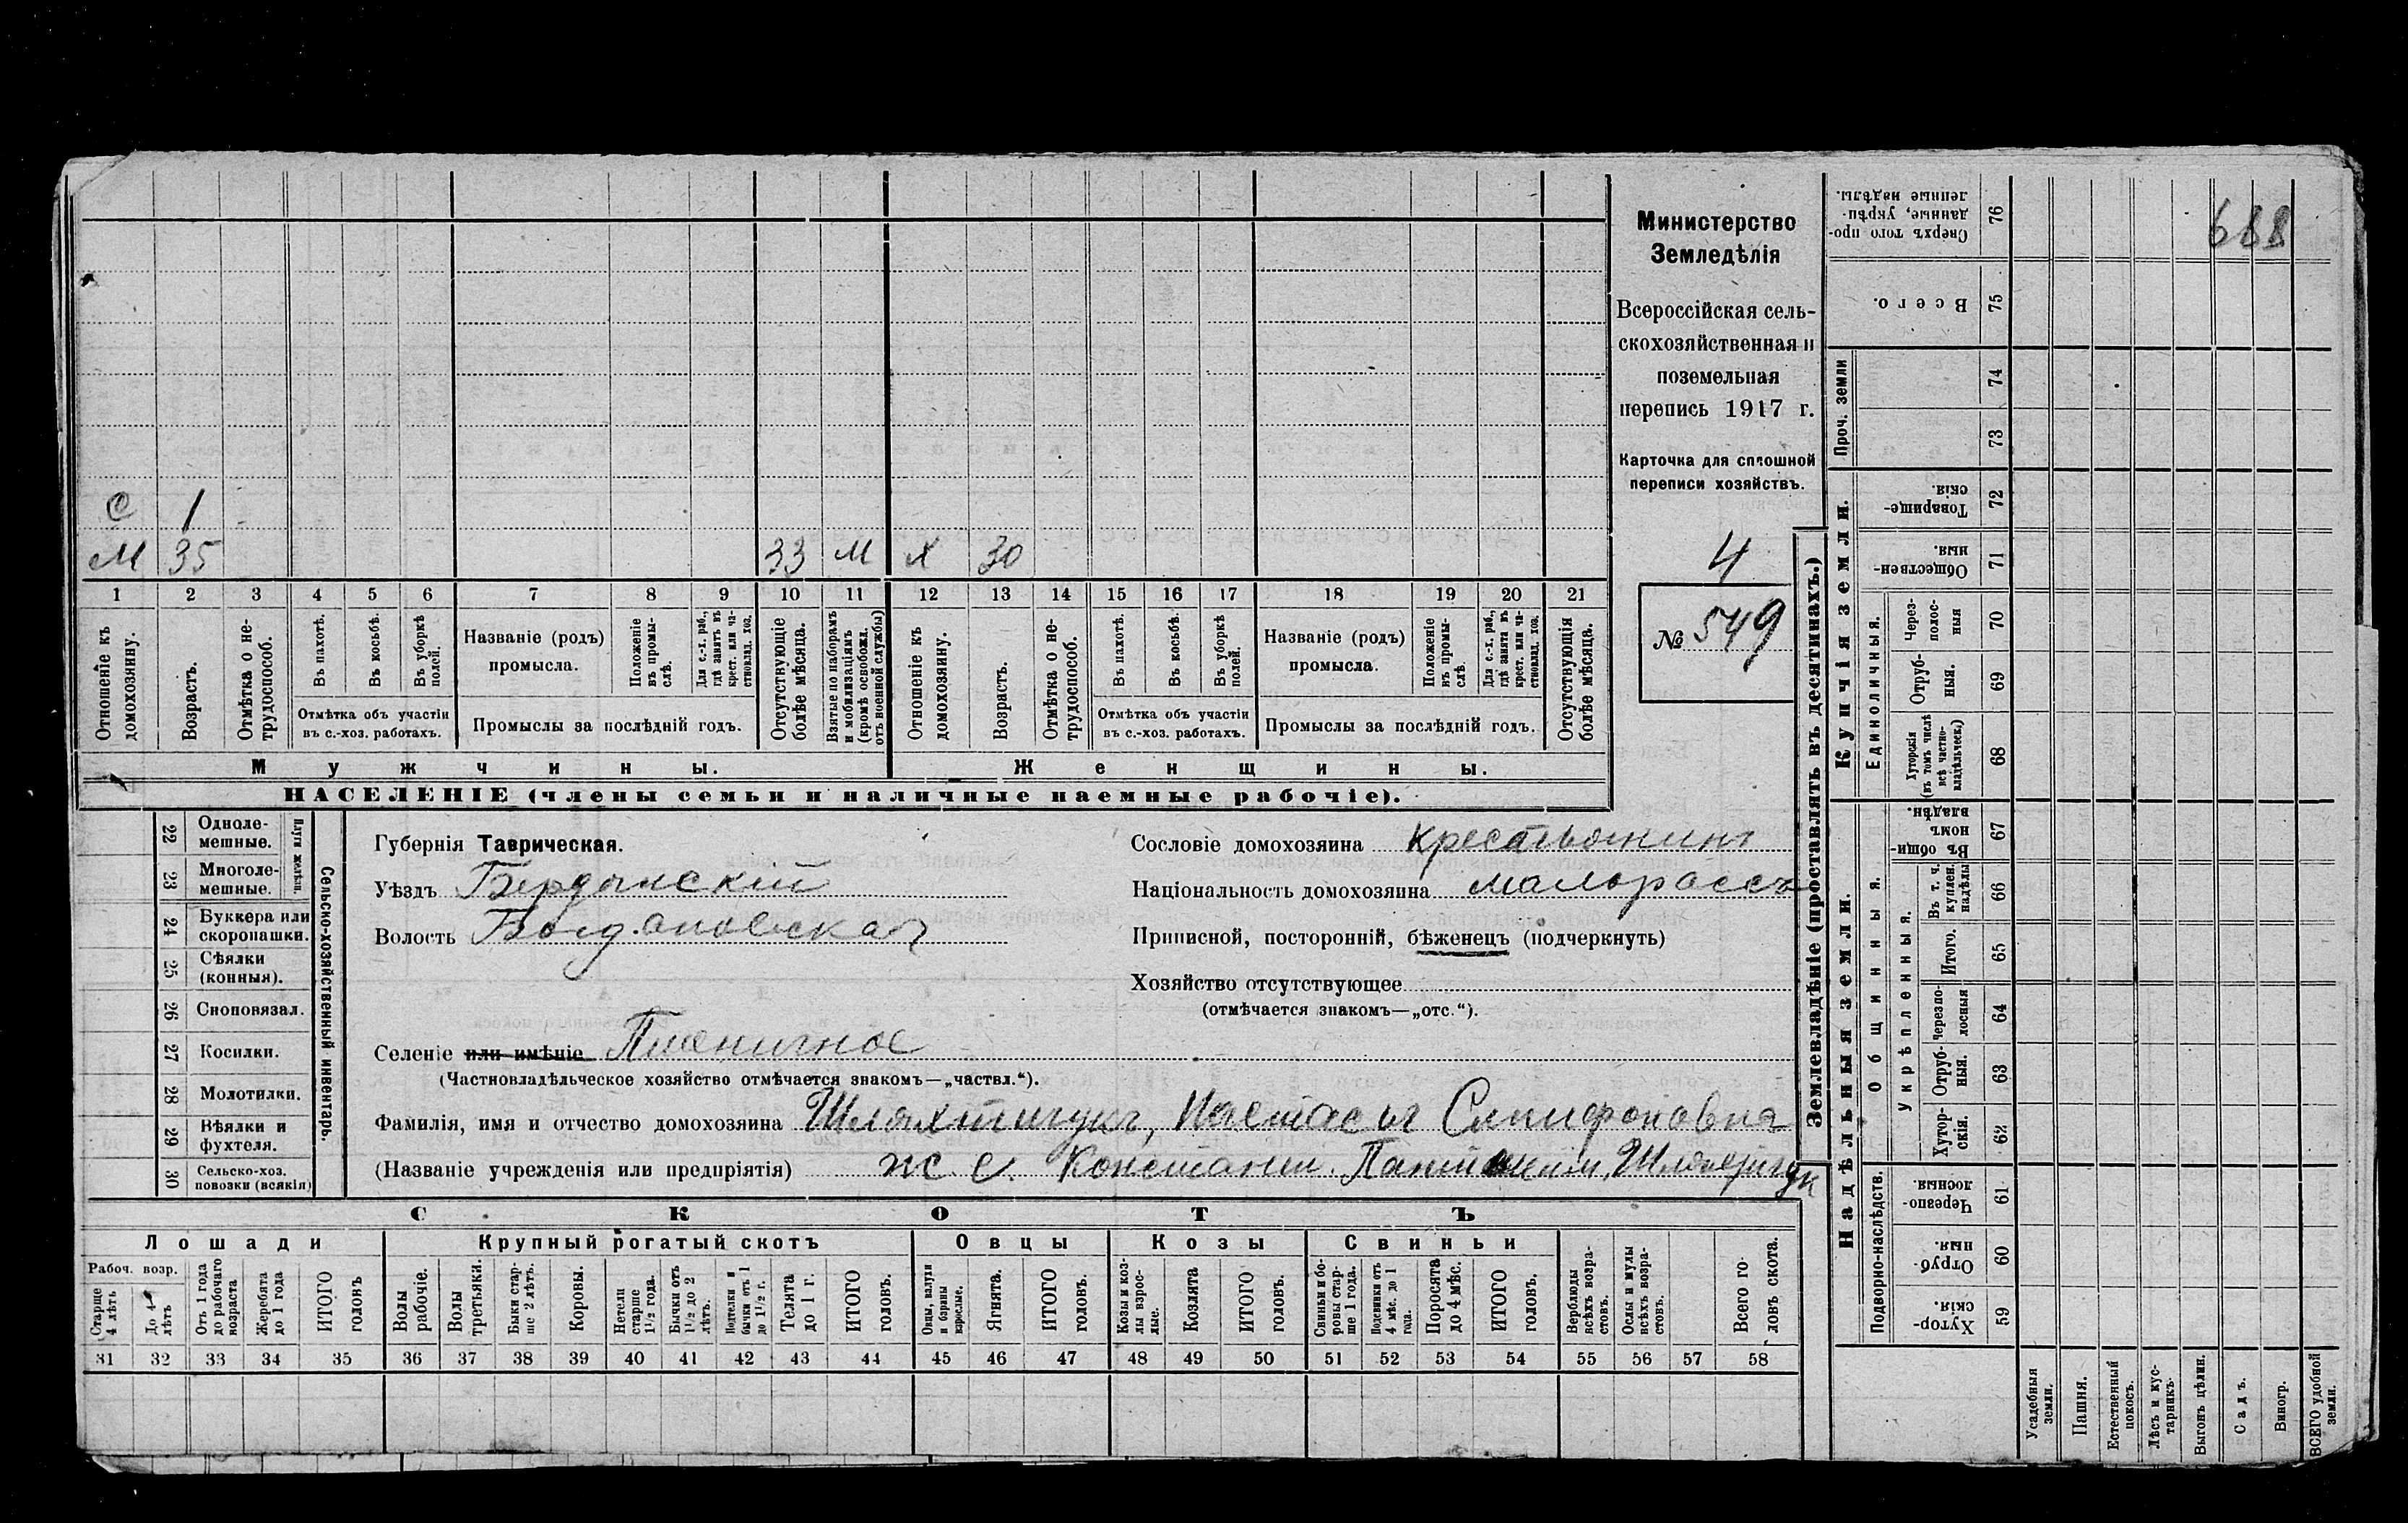 688
Министерство
Земледѣлія
Всероссійская сель-
скохозяйственная и
поземельная
перепись 1917 г.
Карточка для сплошной
переписи хозяйствъ.
4
№ 549
С 1
М 35 33 М Х 30
1 2 3 4 5 6 7 8 9 10 11 12 13 14 15 16 17 18 19 20 21
Отношеніе къ домохозяину.
Возрастъ.
Отмѣтка о не-трудоспособ.
Въ пахотѣ.
Въ косьбѣ.
Въ уборкѣ полей.
Отмѣтка объ участіи
въ с.-хоз. работахъ.
Названіе (родъ)
промысла.
Положеніе въ промы-слѣ.
Для с.-х. раб., гдѣ занятъ въ крест. или ча-стновлад. хоз.
Промыслы за послѣдній годъ.
Отсутствующіе болѣе мѣсяца.
Взятые по наборамъ и мобилизаціямъ (кромѣ освобожд. отъ военной службы)
Отношеніе къ домохозяину.
Возрастъ.
Отмѣтка о не-трудоспособ.
Въ пахотѣ.
Въ косьбѣ.
Въ уборкѣ полей.
Отмѣтка объ участіи
въ с.-хоз. работахъ.
Названіе (родъ)
промысла.
Положеніе въ промы-слѣ.
Для с.-х. раб., гдѣ занята въ крест. или ча-стновлад. хоз.
Промыслы за послѣдній годъ.
Отсутствующія болѣе мѣсяца.
Мужчины. Женщины.
НАСЕЛЕНІЕ (члены семьи и наличные наемные рабочіе).
Сельско-хозяйственный инвентарь.
22 Одноле-мешные.
23 Многоле-мешные.
24 Буккера или скоропашки.
25 Сѣялки (конныя).
26 Сноповязал.
27 Косилки.
28 Молотилки.
29 Вѣялки и фухтеля.
30 Сельско-хоз. повозки (всякія)
Губернія Таврическая.
Уѣздъ Бердянскій
Волость Богдановская
Селеніе или имѣніе Пшеничное
(Частновладѣльческое хозяйство отмѣчается знакомъ—„частвл.“).
Сословіе домохозяина крестьянинъ
Національность домохозяина малороссъ
Приписной, посторонній, бѣженецъ (подчеркнуть)
Хозяйство отсутствующее
(отмѣчается знакомъ—„отс.“).
Фамилія, имя и отчество домохозяина
(Названіе учрежденія или предпріятія)
СКОТЪ
Лошади Крупный рогатый скотъ Овцы Козы Свиньи
Рабоч. возр.
Старше 4 лѣтъ
До 4 лѣтъ
Отъ 1 года до рабочаго возраста
Жеребята до 1 года
ИТОГО головъ
Волы рабочіе.
Волы третьяки.
Быки стар-ше 2 лѣтъ.
Коровы.
Нетели старше 1½ года.
Бычки отъ 1½ до 2 лѣтъ.
Подтелки и бычки отъ 1 до 1½ г.
Телята до 1 г.
ИТОГО головъ.
Овцы, валухи и бараны взрослые.
Ягнята.
ИТОГО головъ.
Козы и коз-лы взрос-лые.
Козлята
ИТОГО головъ.
Свиньи и бо-ровы стар-ше 1 года.
Подсвинки отъ 4 мѣс. до 1 года.
Поросята до 4 мѣс.
ИТОГО головъ.
Верблюды всѣхъ возра-стовъ.
Ослы и мулы всѣхъ возра-стовъ.
Всего го-ловъ скота.
31 32 33 34 35 36 37 38 39 40 41 42 43 44 45 46 47 48 49 50 51 52 53 54 55 56 57 58
Землевладѣніе (проставлять въ десятинахъ.)
Купчія земли.
Надѣльныя земли.
Сверхъ того про-данные, укрѣп-ленные надѣлы. 76
Всего. 75
Проч. земли 74
73
Товарище-скія. 72
Обществен-ныя. 71
Единоличныя.
Через-полос-ныя 70
Отруб-ныя. 69
Хуторскія (въ томъ числѣ всѣ частно-владѣльческ.) 68
Общинныя.
Въ общи-номъ владѣн. 67
Укрѣпленныя.
Въ т. ч. куплен. надѣлы 66
Итого. 65
Черезпо-лосныя 64
Отруб-ныя. 63
Хутор-скія. 62
Подворно-наслѣдств.
Черезпо-лосныя. 61
Отруб-ныя. 60
Хутор-скія. 59
Усадебныя земли.
Пашня.
Естественный покосъ.
Лѣсъ и кус-тарникъ.
Выгонъ цѣлин.
Садъ.
Виногр.
ВСЕГО удобной земли.